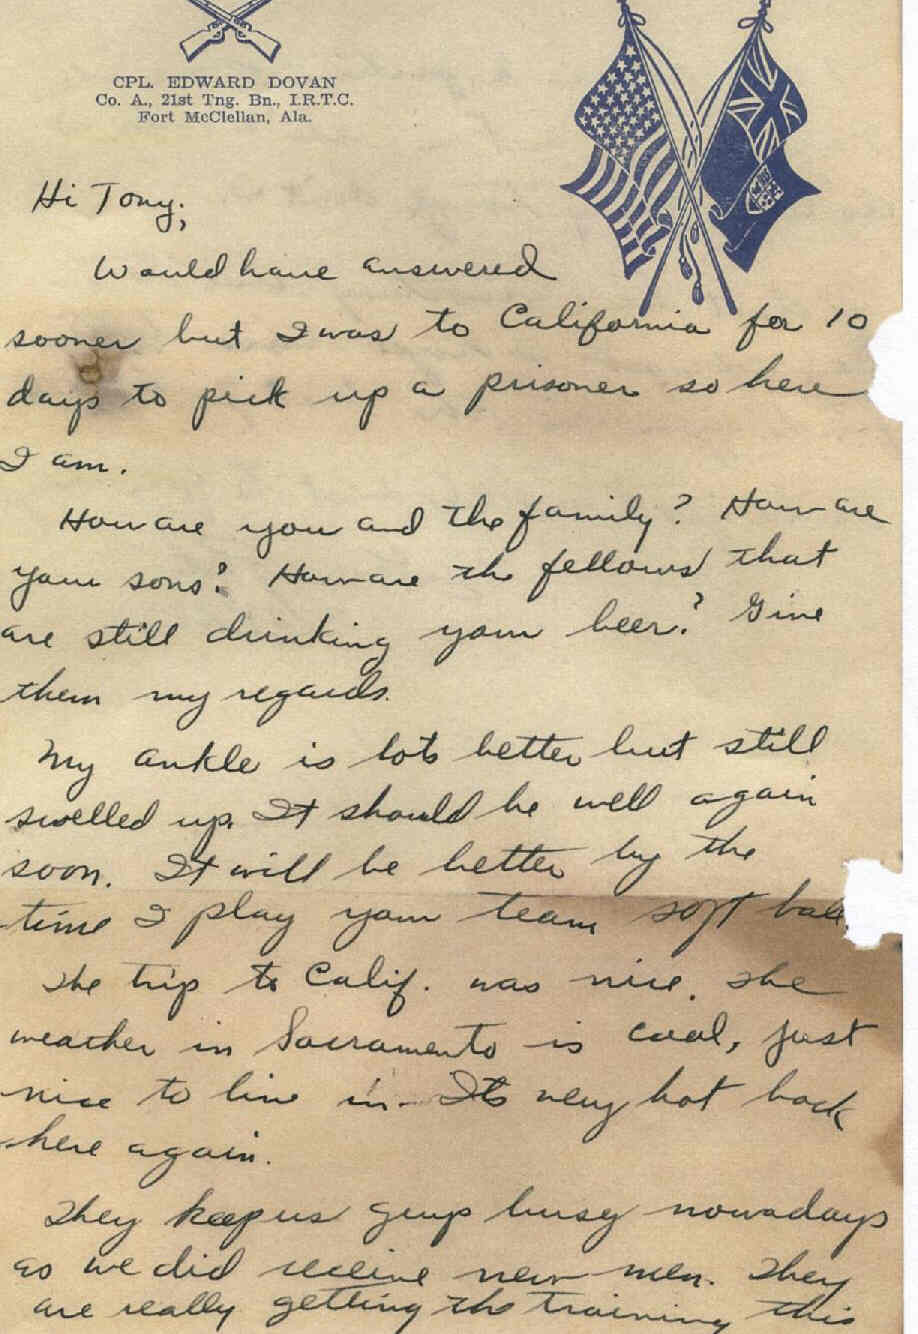 CPL. EDWARD DOVAN
Co. A., 21st Tng. Bn., I.R.T.C.
Fort McClellan, Ala.
Hi Tony;
Would have answered
sooner but I was to California for 10
days to pick up a prisoner so here
I am.
How are you and the family? How are
your sons? How are the fellows that
are still drinking your beer? Give
them my regards.
My ankle is lots better but still
swelled up. It should be well again
soon. It will be better by the
time I play your team soft ball.
The trip to Calif. was nice. The
weather in Sacramento is cool, just
nice to live in. Its very hot back
here again.
They keep us guys busy nowadays
as we did receive new men. They
are really getting the training this